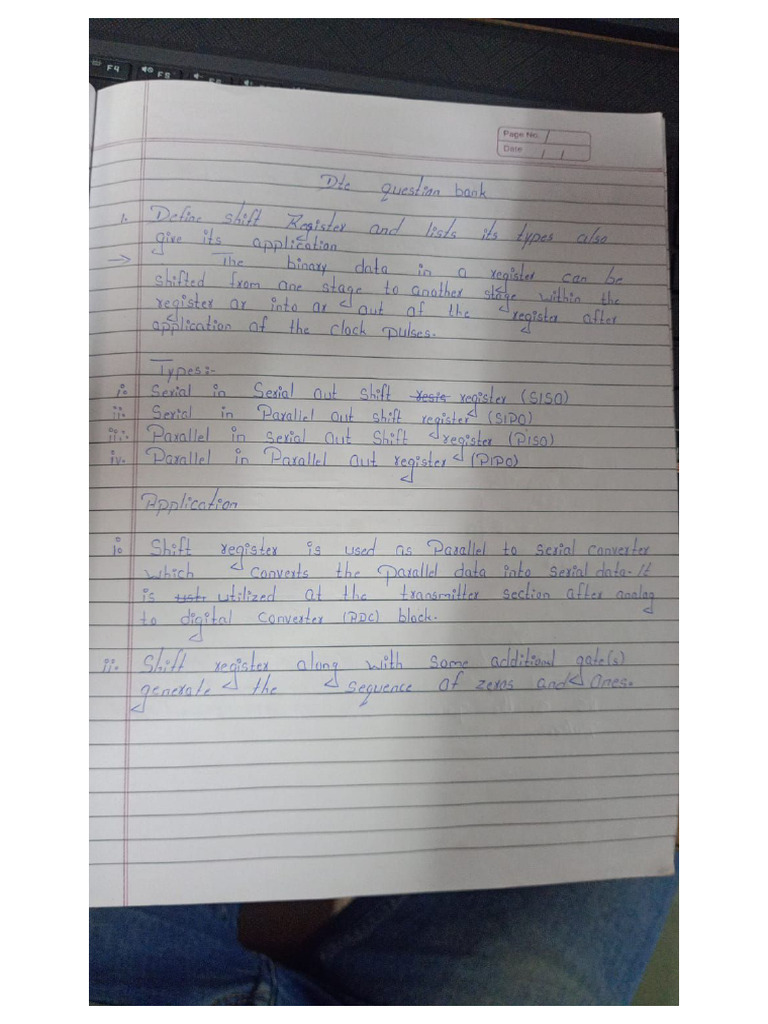 F4
F5
Page No.
Date
Dte question bank
1. Define shift Register and lists its types also
give its application
→ The binary data in a register can be
shifted from one stage to another stage within the
register or into or out of the register after
application of the clock pulses.
Types:-
i. Serial in Serial out shift register (SISO)
ii. Serial in Parallel out shift register (SIPO)
iii. Parallel in serial out Shift register (PISO)
iv. Parallel in Parallel out register (PIPO)
Application
i. Shift register is used as Parallel to serial converter
which converts the parallel data into serial data. It
is utilized at the transmitter section after analog
to digital Converter (ADC) block.
ii. Shift register along with some additional gate(s)
generate the sequence of zeros and Ones.